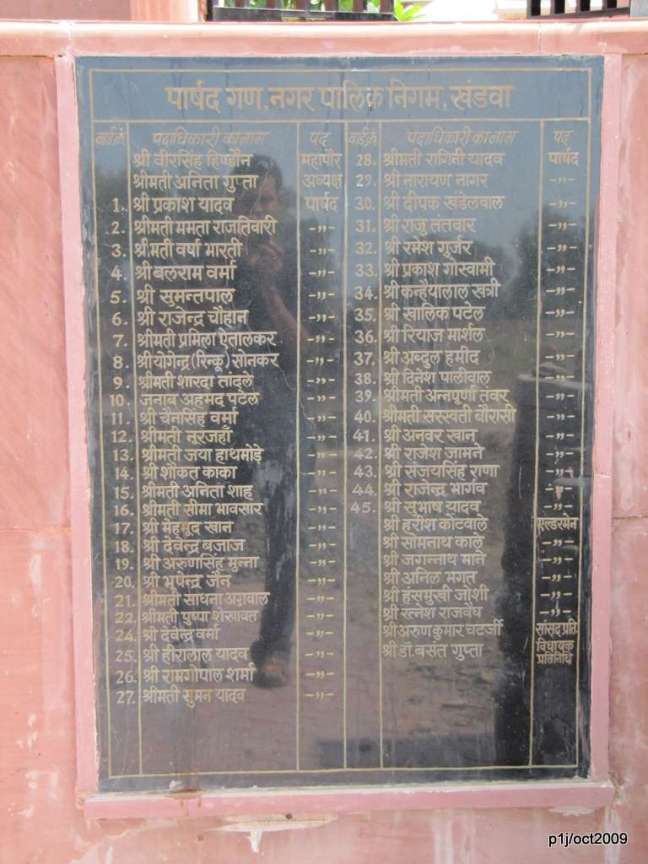 पार्षद गण, नगर पालिक निगम, खंडवा
वार्ड क्रं. पदाधिकारी का नाम पद
श्री वीरसिंह हिण्डौन महापौर
श्रीमती अनिता गुप्ता अध्यक्ष
1. श्री प्रकाश यादव पार्षद
2. श्रीमती ममता राजतिवारी -,,-
3. श्रीमती वर्षा भारती -,,-
4. श्री बलराम वर्मा -,,-
5. श्री सुमन्तपाल -,,-
6. श्री राजेन्द्र चौहान -,,-
7. श्रीमती प्रमिला ऐतालकर -,,-
8. श्री योगेन्द्र (रिन्कू) सोनकर -,,-
9. श्रीमती शारदा तांदुले -,,-
10. जनाब अहमद पटेल -,,-
11. श्री चैनसिंह वर्मा -,,-
12. श्रीमती नूरजहाँ -,,-
13. श्रीमती जया हाथमोड़े -,,-
14. श्री शौकत काका -,,-
15. श्रीमती अनिता शाहू -,,-
16. श्रीमती सीमा भावसार -,,-
17. श्री मेहमूद खान -,,-
18. श्री देवेन्द्र बजाज -,,-
19. श्री अरुणसिंह मुन्ना -,,-
20. श्री भूपेन्द्र जैन -,,-
21. श्रीमती साधना अग्रवाल -,,-
22. श्रीमती पुष्पा शेखावत -,,-
24. श्री देवेन्द्र वर्मा -,,-
25. श्री हीरालाल यादव -,,-
26. श्री रामगोपाल शर्मा -,,-
27. श्रीमती सुमन यादव -,,-
वार्ड क्रं. पदाधिकारी का नाम पद
28. श्रीमती रागिनी यादव पार्षद
29. श्री नारायण नागर -,,-
30. श्री दीपक खंडेलवाल -,,-
31. श्री राजू तंतवार -,,-
32. श्री रमेश गूर्जर -,,-
33. श्री प्रकाश गोस्वामी -,,-
34. श्री कन्हैयालाल खत्री -,,-
35. श्री खालिक पटेल -,,-
36. श्री रियाज मार्शल -,,-
37. श्री अब्दुल हमीद -,,-
38. श्री दिनेश पालीवाल -,,-
39. श्रीमती अन्नपूर्णा तंवर -,,-
40. श्रीमती सरस्वती चौरासी -,,-
41. श्री अनवर खान -,,-
42. श्री राजेश जामने -,,-
43. श्री संजयसिंह राणा -,,-
44. श्री राजेन्द्र भार्गव -,,-
45. श्री सुभाष यादव -,,-
श्री हरीश कोटवाले एल्डरमेन
श्री सोमनाथ काले -,,-
श्री जगन्नाथ माने -,,-
श्री अनिल भगत -,,-
श्री हंसमुखी जोशी -,,-
श्री रत्नेश राजवैध -,,-
श्री अरुणकुमार चटर्जी सांसद प्रति.
श्री डॉ. बसंत गुप्ता विधायक
प्रतिनिधि
p1j/oct2009